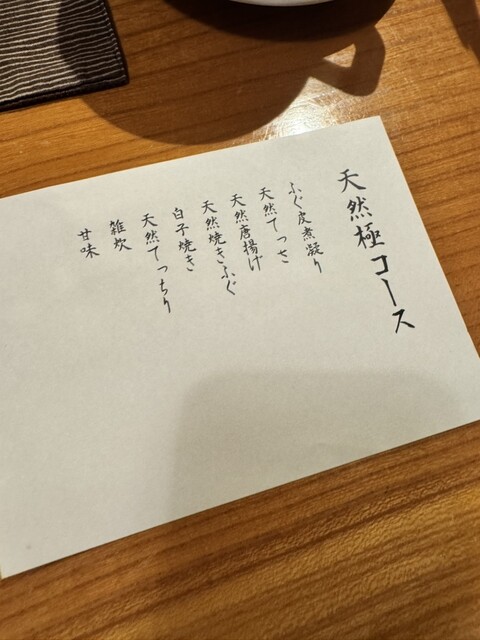 天然極コース
ふぐ皮煮凝り
天然てっさ
天然唐揚げ
天然焼きふぐ
白子焼き
天然てっちり
雑炊
甘味